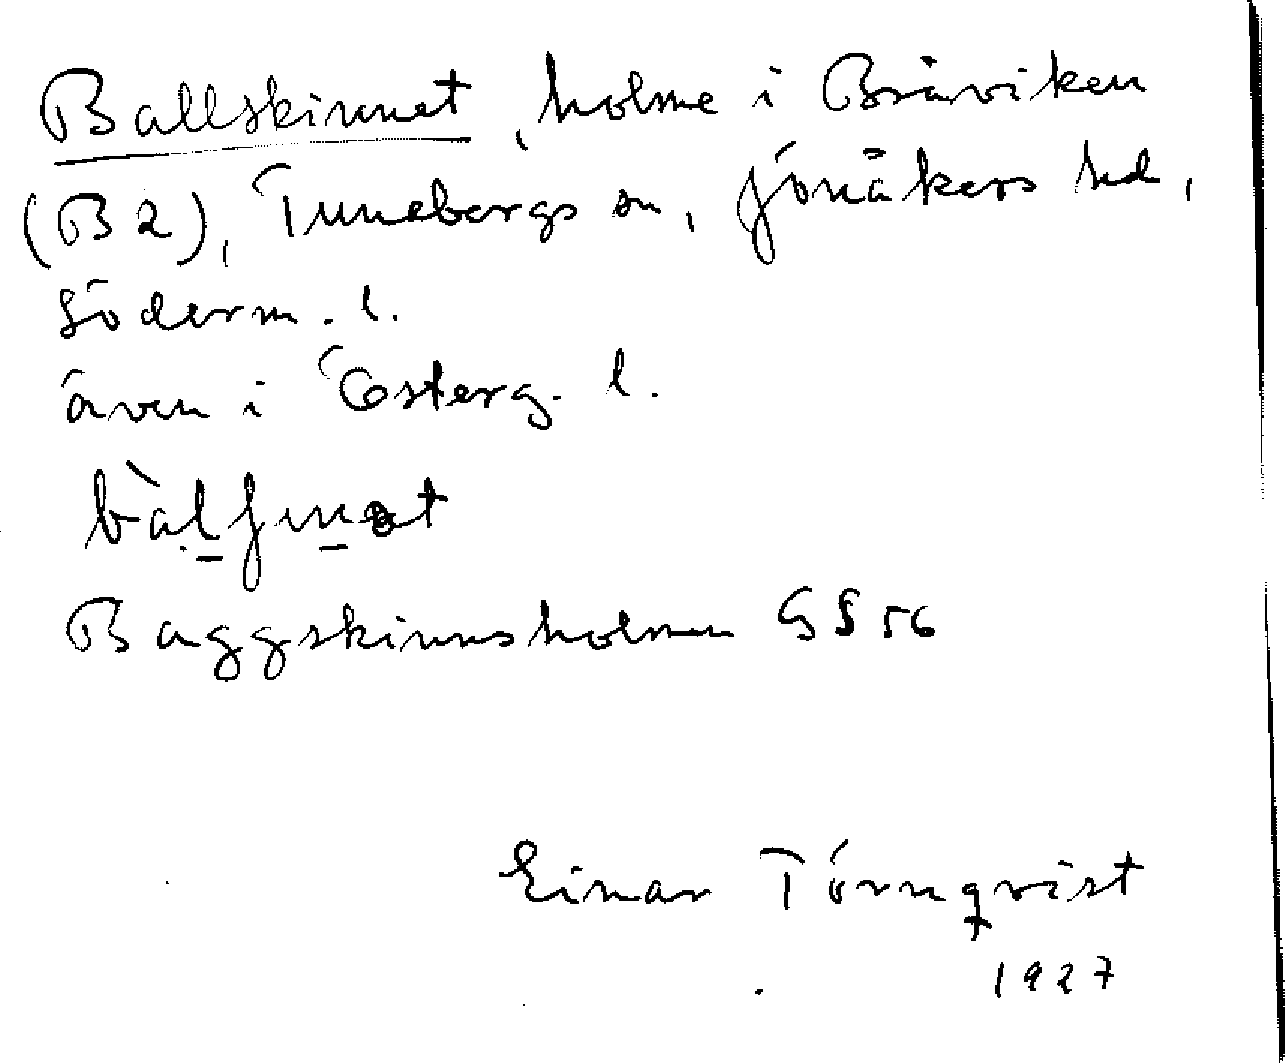 Ballskinnet, holme i Bråviken
(B2), Tunabergs sn, Jönåkers hd,
Söderm. l.
även i Österg. l.
Baggskinnsholmen GS 56
Einar Törnqvist
1927